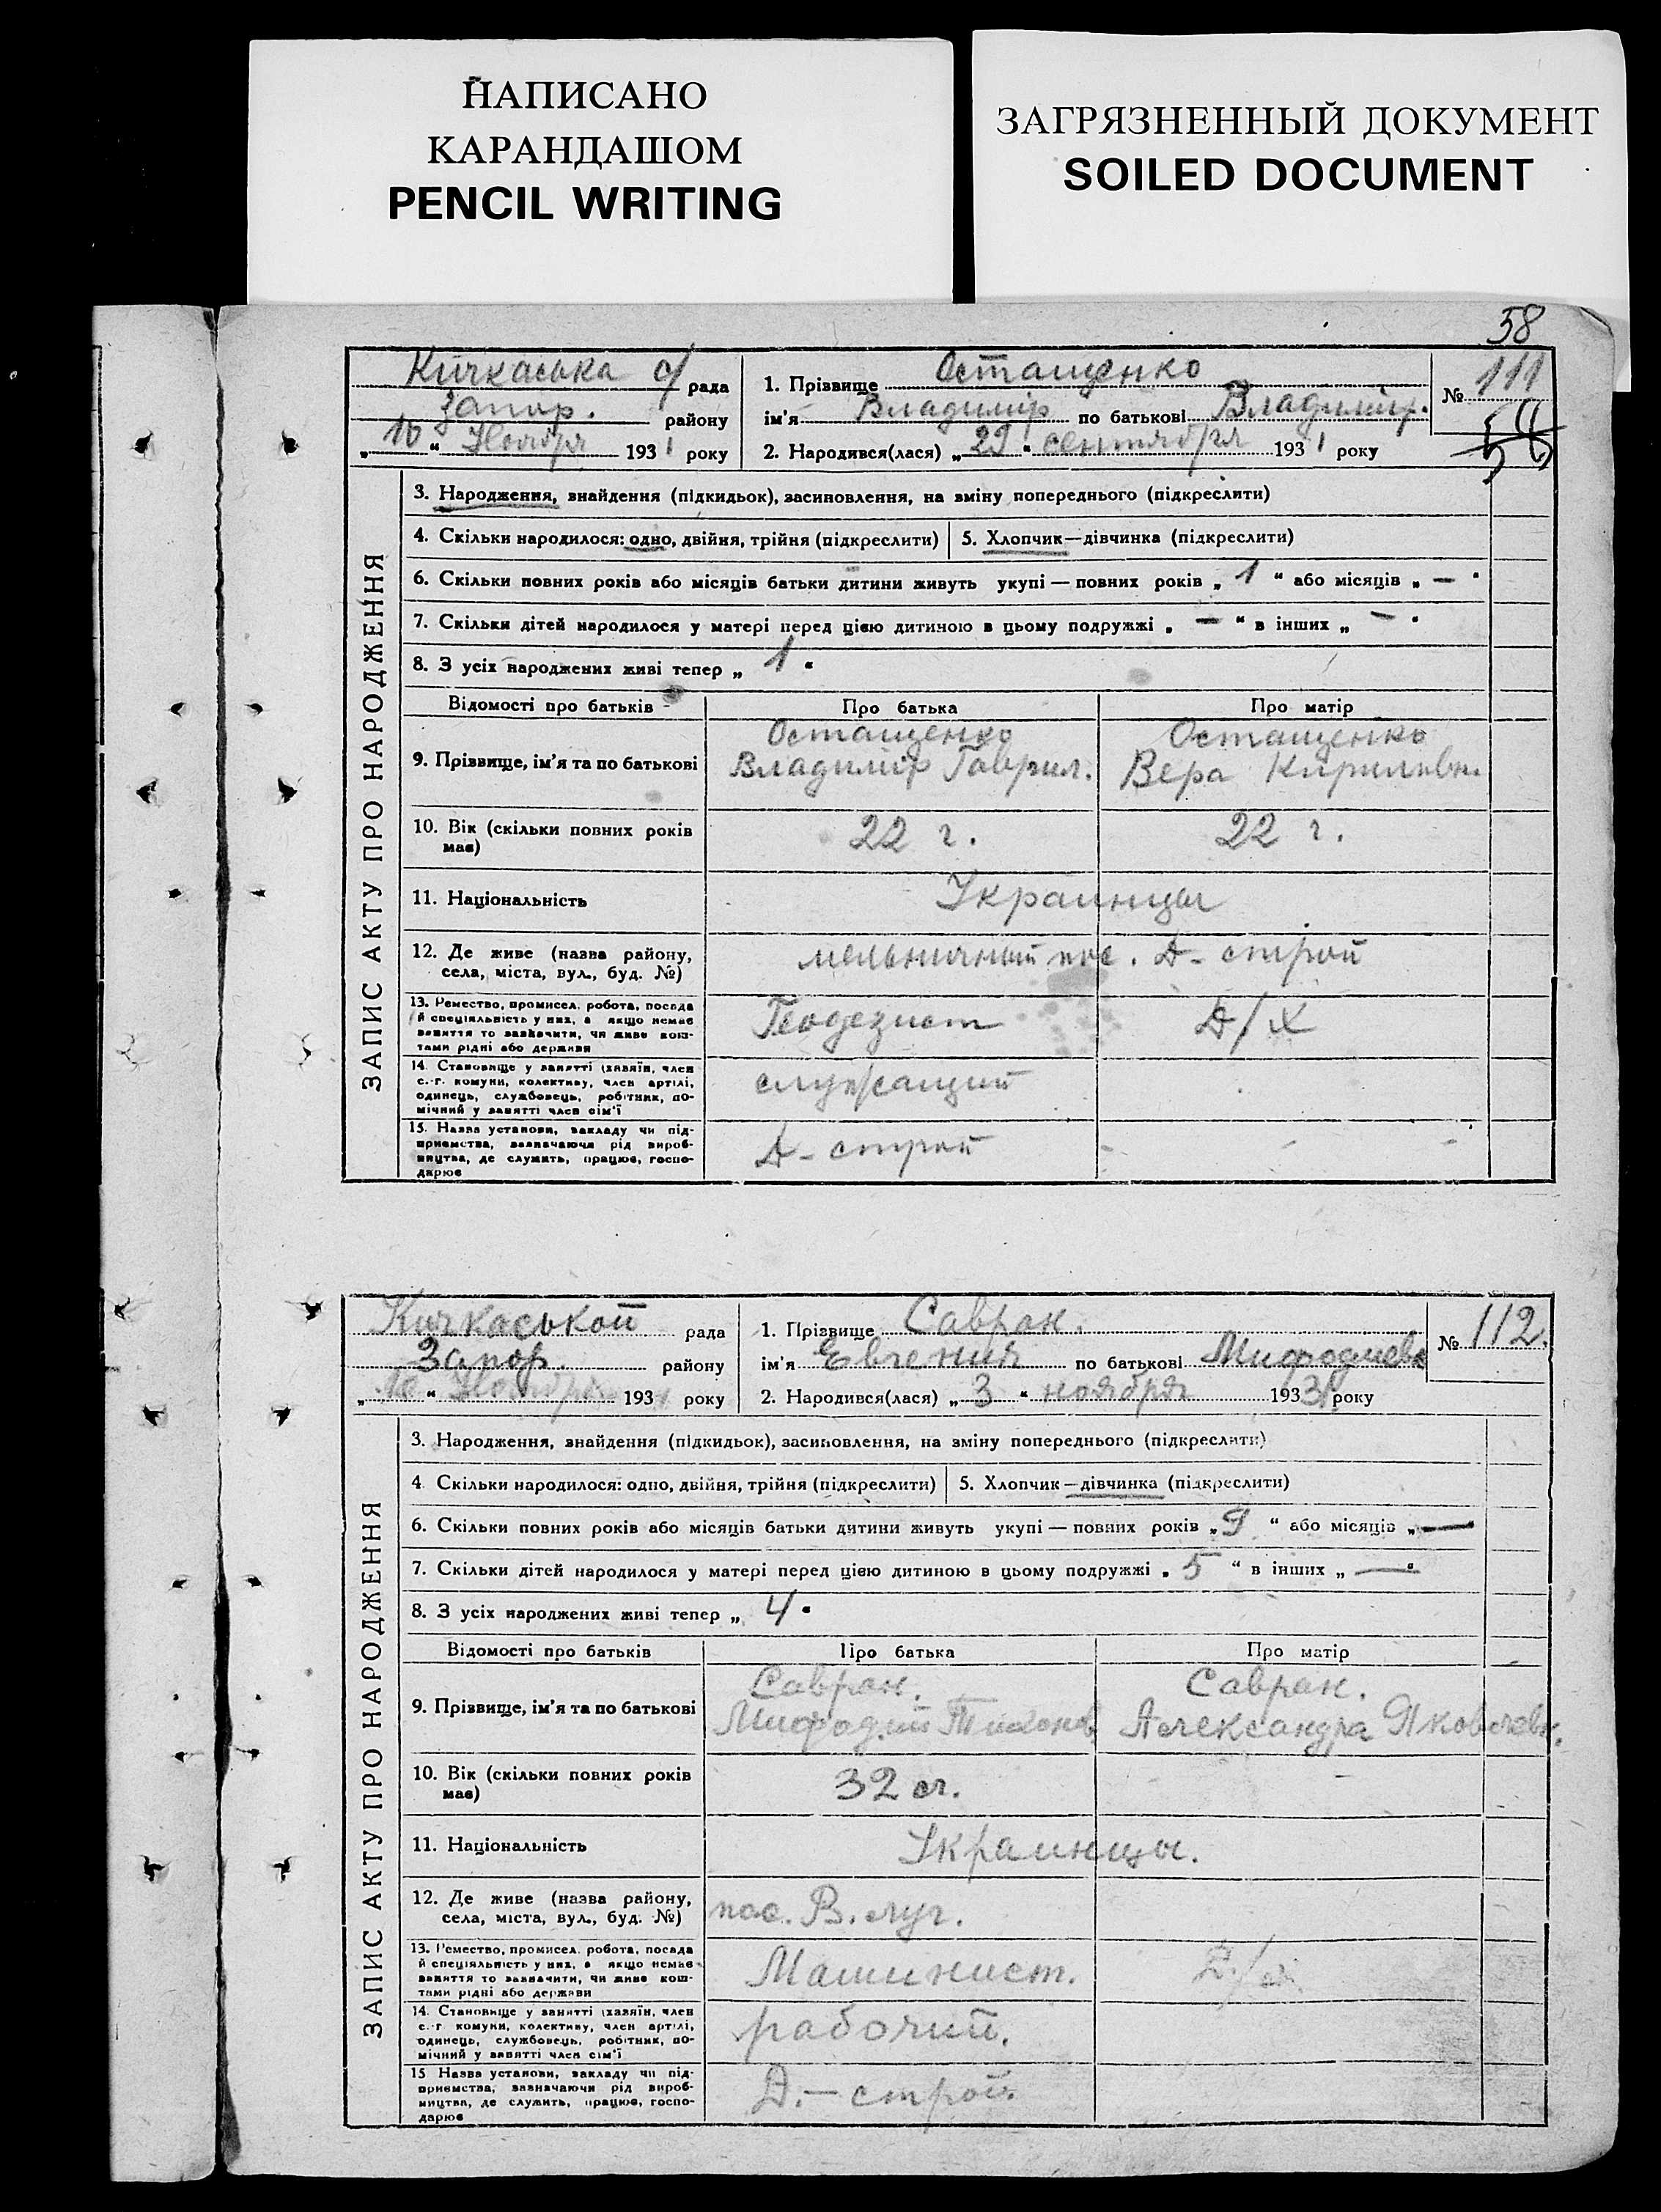 НАПИСАНО
КАРАНДАШОМ
PENCIL WRITING
ЗАГРЯЗНЕННЫЙ ДОКУМЕНТ
SOILED DOCUMENT
58
Кичкаська с/ рада
Запор. району
„10“ Ноября 1931 року
1. Прізвище Остащенко
ім'я Владимір по батькові Владимір.
2. Народився(лася) „29“ сентября 1931 року
№ 111
58
ЗАПИС АКТУ ПРО НАРОДЖЕННЯ
3. Народження, знайдення (підкидьок), засиновлення, на зміну попереднього (підкреслити)
4. Скільки народилося: одно, двійня, трійня (підкреслити)
5. Хлопчик—дівчинка (підкреслити)
6. Скільки повних років або місяців батьки дитини живуть укупі — повних років „1“ або місяців „—“
7. Скільки дітей народилося у матері перед цією дитиною в цьому подружжі „—“ в інших „—“
8. З усіх народжених живі тепер „1“
Відомості про батьків Про батька Про матір
9. Прізвище, ім'я та по батькові
Остащенко
Владимір Гаврил.
Остащенко
Вера Кирилевн.
10. Вік (скільки повних років
має)
22 г. 22 г.
11. Національність Украинцы
12. Де живе (назва району,
села, міста, вул., буд. №)
мельничный пос. Д-строй
13. Ремество, промисел, робота, посада
й спеціяльність у них, а якщо немає
заняття то зазначити, чи живе кош-
тами рідні або держави
Геодезист Д/Х
14. Становище у занятті (хазяїн, член
с.-г. комуни, колективу, член артілі,
одинець, службовець, робітник, по-
мічний у занятті член сім'ї
служащий
15. Назва установи, закладу чи під-
приємства, зазначаючи рід вироб-
ництва, де служить, працює, госпо-
дарює
Д-строй - - -
Кичкаськой рада
Запор. району
„10“ Ноября 1931 року
1. Прізвище Савран.
ім'я Евгения по батькові Мифодиевн
2. Народився(лася) „3“ ноября 1931 року
№ 112.
ЗАПИС АКТУ ПРО НАРОДЖЕННЯ
3. Народження, знайдення (підкидьок), засиновлення, на зміну попереднього (підкреслити)
4. Скільки народилося: одно, двійня, трійня (підкреслити)
5. Хлопчик—дівчинка (підкреслити)
6. Скільки повних років або місяців батьки дитини живуть укупі — повних років „9“ або місяців „—
7. Скільки дітей народилося у матері перед цією дитиною в цьому подружжі „5“ в інших „—“
8. З усіх народжених живі тепер „4“
Відомості про батьків Про батька Про матір
9. Прізвище, ім'я та по батькові
Савран.
Мифодий Тихонов.
Савран.
Александра Яковлевн.
10. Вік (скільки повних років
має)
32 л. -
11. Національність Украинцы.
12. Де живе (назва району,
села, міста, вул., буд. №)
пос. В. луг.
13. Ремество, промисел, робота, посада
й спеціяльність у них, а якщо немає
заняття то зазначити, чи живе кош-
тами рідні або держави
Машинист.
14. Становище у занятті (хазяїн, член
с.-г. комуни, колективу, член артілі,
одинець, службовець, робітник, по-
мічний у занятті член сім'ї
рабочий.
15 Назва установи, закладу чи під-
приємства, зазначаючи рід вироб-
ництва, де служить, працює, госпо-
дарює
Д.—строй.